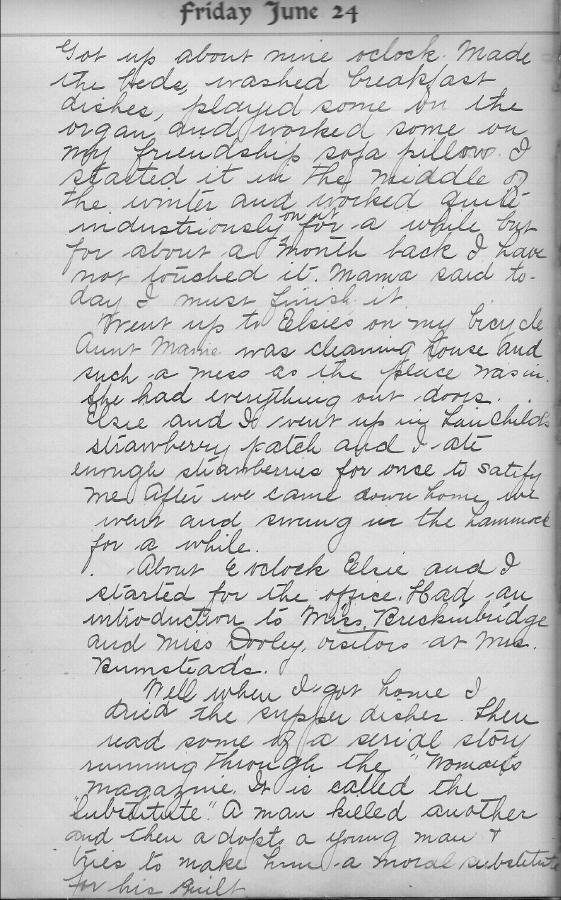 Friday June 24
Got up about nine oclock. Made
the beds, washed breakfast
dishes, played some on the
organ, and worked some on
my friendship sofa pillow. I
started it in the middle of
the winter and worked quite
industriously on it for a while but
for about a month back I have
not touched it. Mama said to-
day I must finish it.
Went up to Elsie's on my bicycle
Aunt Mamie was cleaning house and
such a mess as the place was in.
She had everything out doors.
Elsie and I went up in Fairchild's
strawberry patch and I ate
enough strawberries for once to satify
me. After we came down home, we
went and swung in the hammock
for a while.
About oclock Elsie and I
started for the office. Had an
introduction to Miss. Breckinbridge
and Miss Dooley, visitors at Mrs.
Bumstead's.
Well when I got home I
dried the supper dishes. Then
read some of a serial story
running through the "Woman's
Magazine. It is called the
"Substitute". A man killed another
and then adopts a young man +
tries to make him a moral substitute
for his guilt